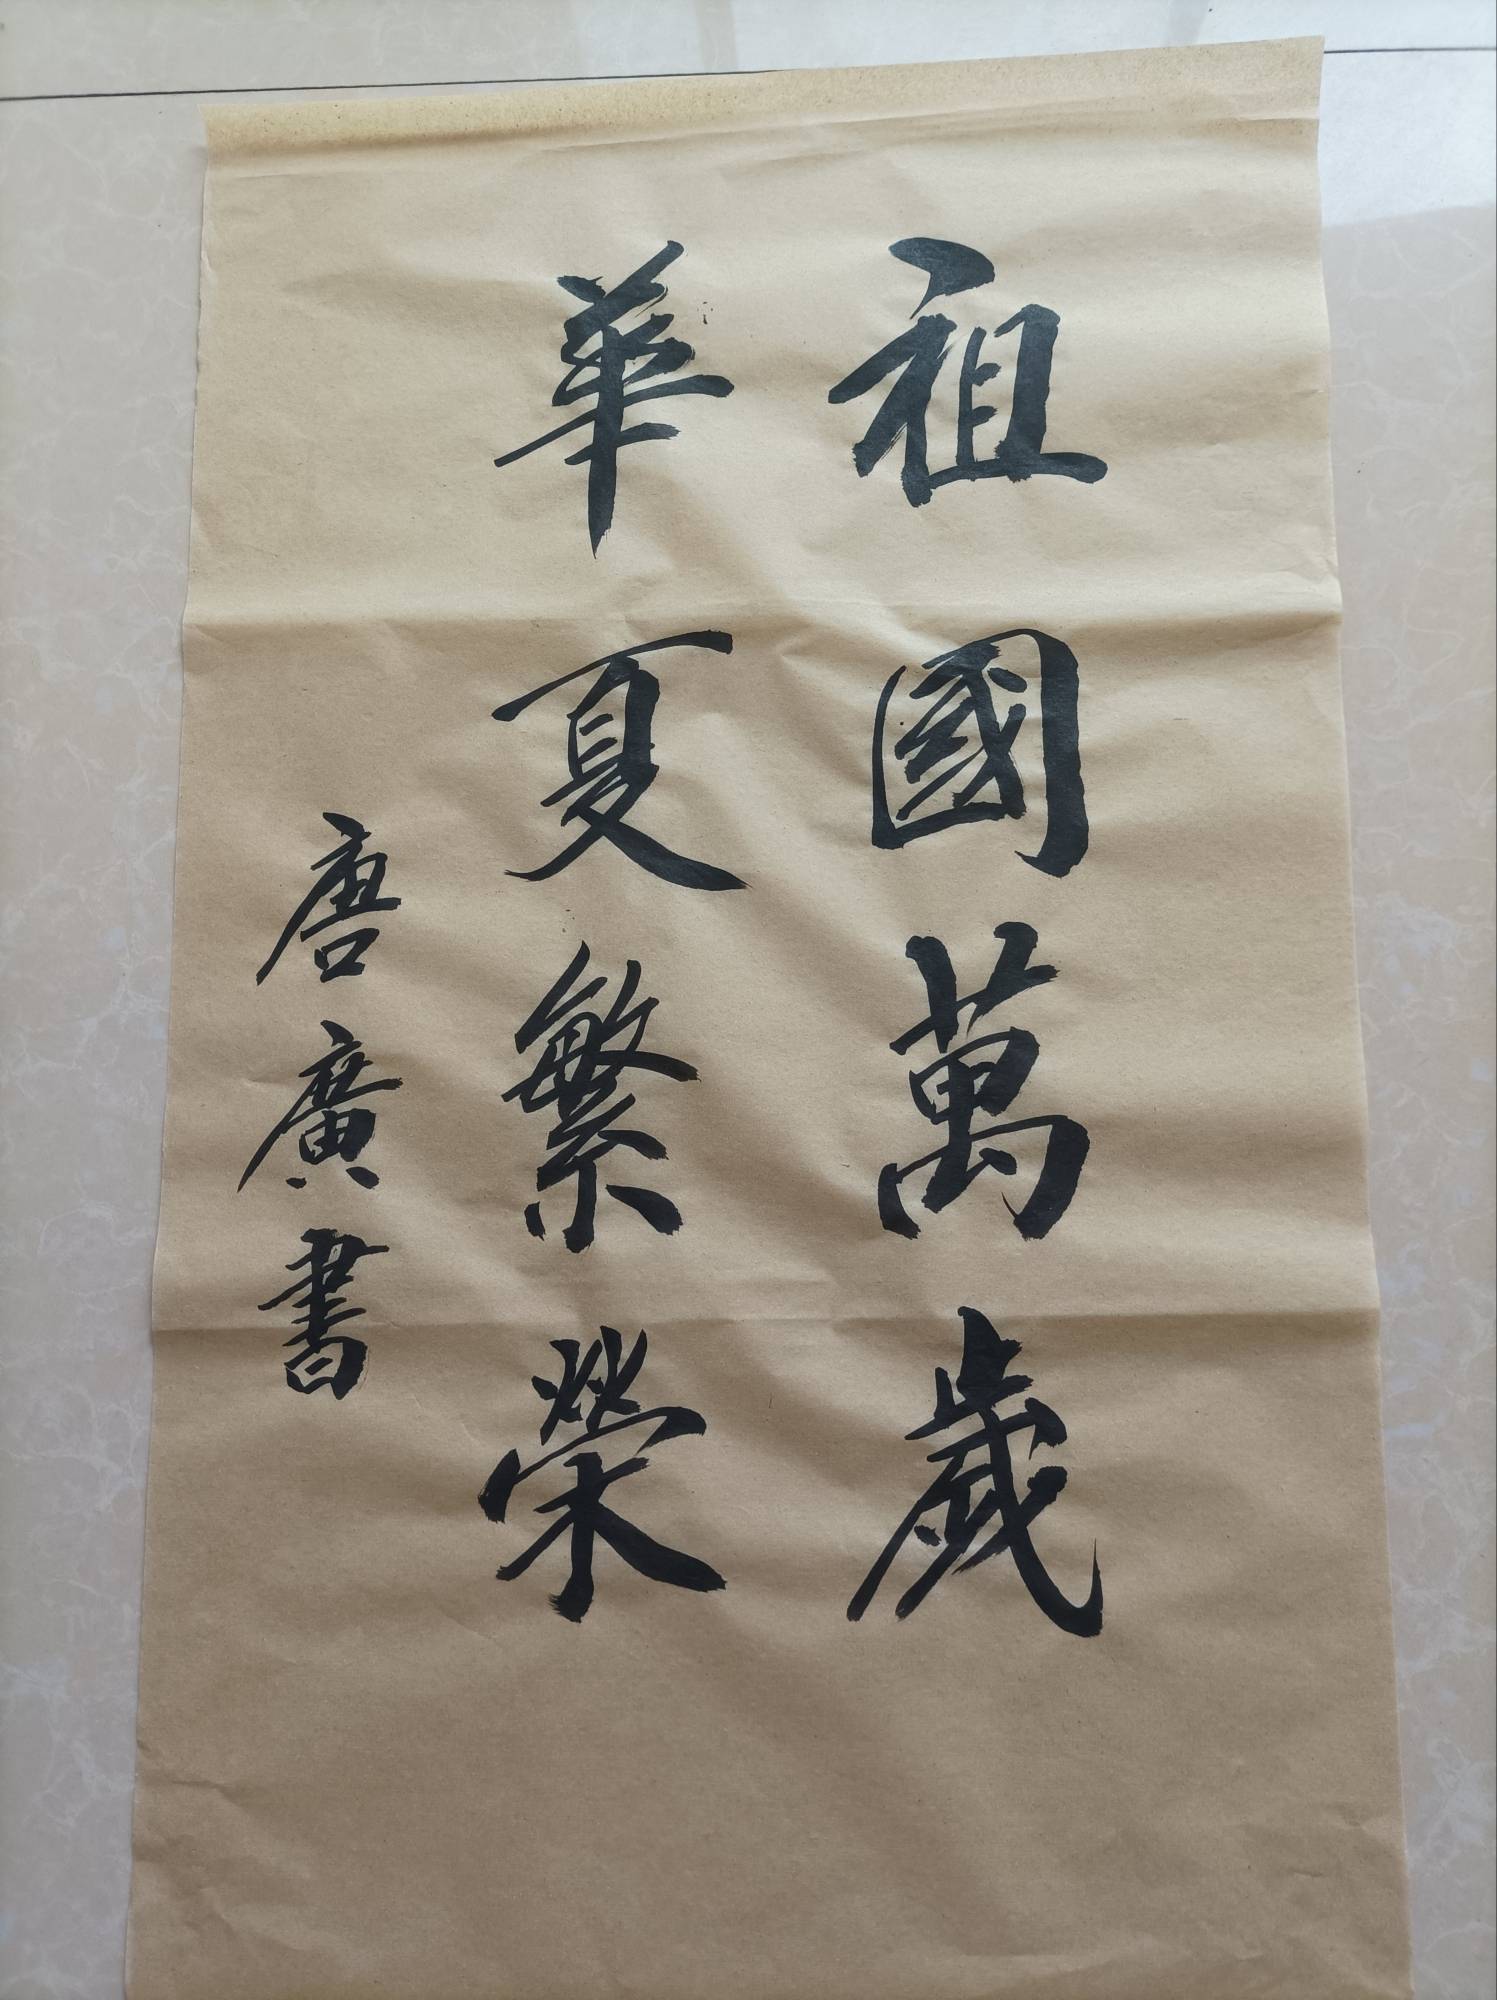 祖國萬歲
華夏繁榮
唐廣書